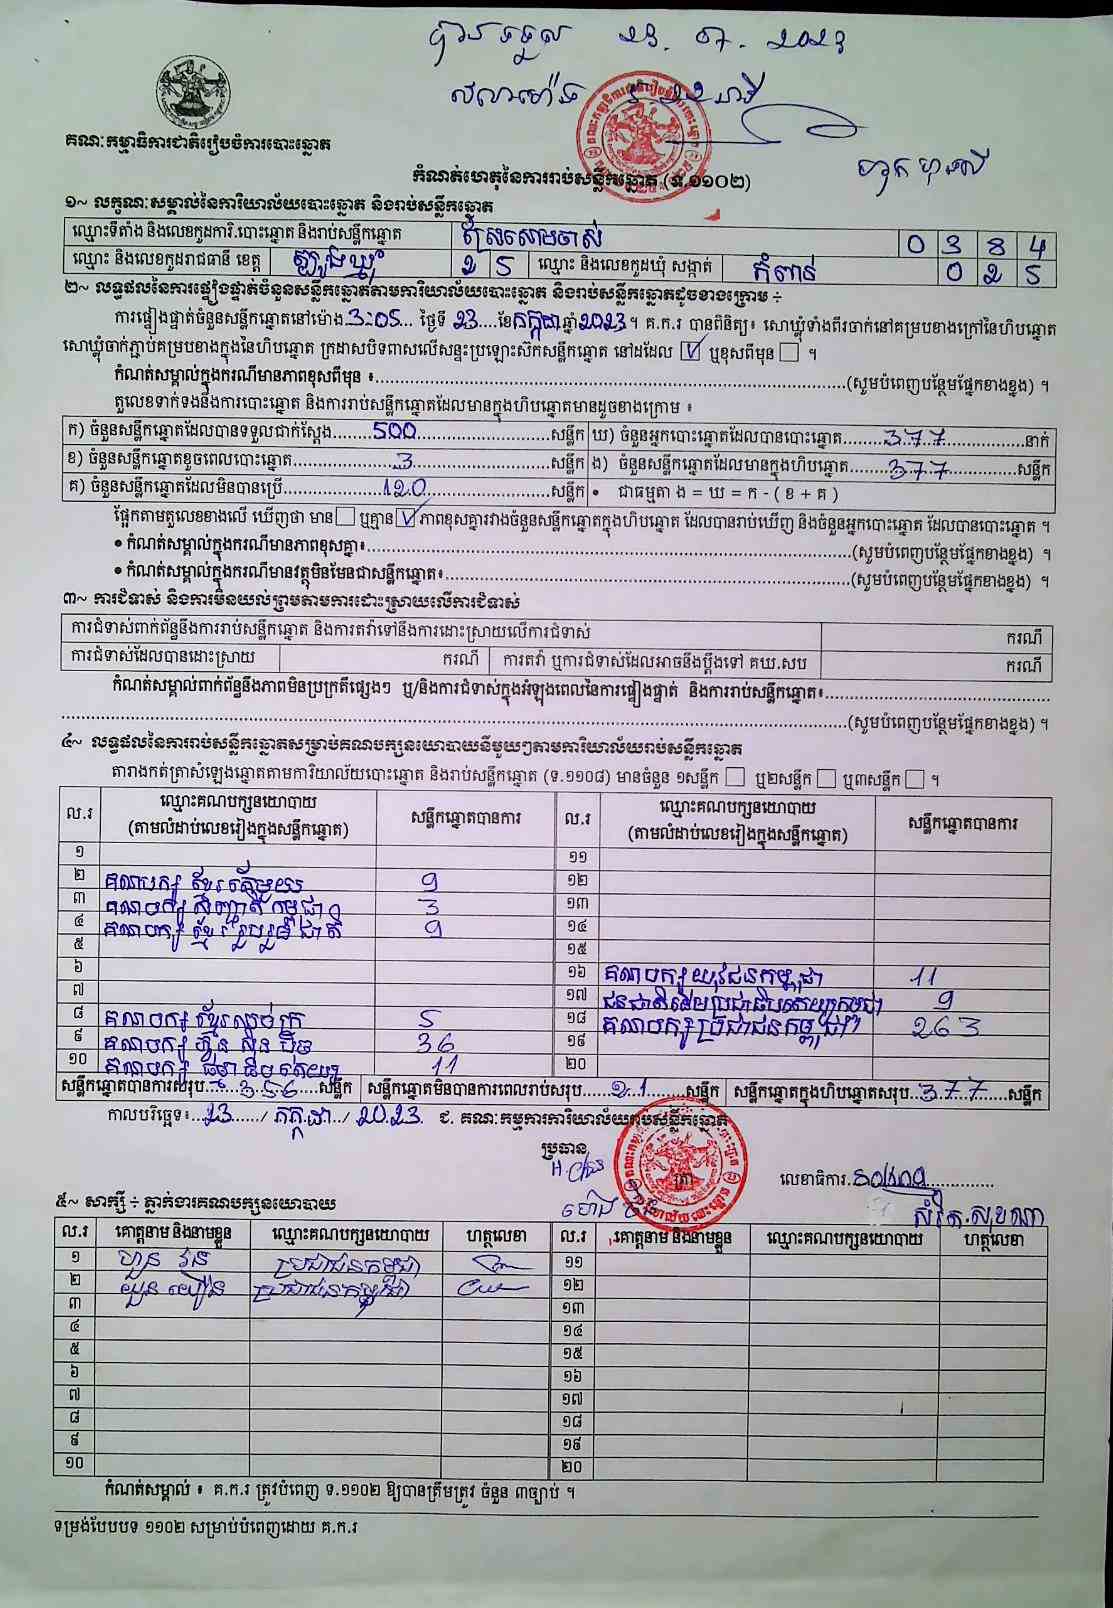 បានទទួល 23. 07. 2023
គណៈកម្មាធិការជាតិរៀបចំការបោះឆ្នោត
កំណត់ហេតុនៃការរាប់សន្លឹកឆ្នោត (ទ.១១០២)
១~ លក្ខណៈសម្គាល់នៃការិយាល័យបោះឆ្នោត និងរាប់សន្លឹកឆ្នោត
ឈ្មោះទីតាំង និងលេខកូដការិ.បោះឆ្នោត និងរាប់សន្លឹកឆ្នោត 0 3 8 4
ឈ្មោះ និងលេខកូដរាជធានី ខេត្ត ត្បូងឃ្មុំ 2 5 ឈ្មោះ និងលេខកូដឃុំ សង្កាត់ 0 2 5
២~ លទ្ធផលនៃការផ្ទៀងផ្ទាត់ចំនួនសន្លឹកឆ្នោតតាមការិយាល័យបោះឆ្នោត និងរាប់សន្លឹកឆ្នោតដូចខាងក្រោម ÷
ការផ្ទៀងផ្ទាត់ចំនួនសន្លឹកឆ្នោតនៅម៉ោង 3:05 ថ្ងៃទី 23 ខែ កក្កដា ឆ្នាំ 2023 ។ គ.ក.រ បានពិនិត្យ៖ សោឃ្លុំទាំងពីរចាក់នៅគម្របខាងក្រៅនៃហិបឆ្នោត
សោឃ្លុំចាក់ភ្ជាប់គម្របខាងក្នុងនៃហិបឆ្នោត ក្រដាសបិទពាសលើសន្ទះប្រឡោះស៊កសន្លឹកឆ្នោត នៅដដែល ☑ ឬខុសពីមុន ☐ ។
កំណត់សម្គាល់ក្នុងករណីមានភាពខុសពីមុន ៖..........(សូមបំពេញបន្ថែមផ្នែកខាងខ្នង) ។
តួលេខទាក់ទងនឹងការបោះឆ្នោត និងការរាប់សន្លឹកឆ្នោតដែលមានក្នុងហិបឆ្នោតមានដូចខាងក្រោម ៖
ក) ចំនួនសន្លឹកឆ្នោតដែលបានទទួលជាក់ស្តែង 500 សន្លឹក ឃ) ចំនួនអ្នកបោះឆ្នោតដែលបានបោះឆ្នោត 377 នាក់
ខ) ចំនួនសន្លឹកឆ្នោតខូចពេលបោះឆ្នោត 3 សន្លឹក ង) ចំនួនសន្លឹកឆ្នោតដែលមានក្នុងហិបឆ្នោត 377 សន្លឹក
គ) ចំនួនសន្លឹកឆ្នោតដែលមិនបានប្រើ 120 សន្លឹក • ជាធម្មតា ង = ឃ = ក - ( ខ + គ )
ផ្អែកតាមតួលេខខាងលើ ឃើញថា មាន ☐ ឬគ្មាន ☑ ភាពខុសគ្នារវាងចំនួនសន្លឹកឆ្នោតក្នុងហិបឆ្នោត ដែលបានរាប់ឃើញ និងចំនួនអ្នកបោះឆ្នោត ដែលបានបោះឆ្នោត ។
• កំណត់សម្គាល់ក្នុងករណីមានភាពខុសគ្នា៖..........(សូមបំពេញបន្ថែមផ្នែកខាងខ្នង) ។
• កំណត់សម្គាល់ក្នុងករណីមានវត្ថុមិនមែនជាសន្លឹកឆ្នោត៖..........(សូមបំពេញបន្ថែមផ្នែកខាងខ្នង) ។
៣~ ការជំទាស់ និងការមិនយល់ព្រមតាមការដោះស្រាយលើការជំទាស់
ការជំទាស់ពាក់ព័ន្ធនឹងការរាប់សន្លឹកឆ្នោត និងការតវ៉ាទៅនឹងការដោះស្រាយលើការជំទាស់ ករណី
ការជំទាស់ដែលបានដោះស្រាយ ករណី ការតវ៉ា ឬការជំទាស់ដែលអាចនឹងប្តឹងទៅ គឃ.សប ករណី
កំណត់សម្គាល់ពាក់ព័ន្ធនឹងភាពមិនប្រក្រតីផ្សេងៗ ឬ/និងការជំទាស់ក្នុងអំឡុងពេលនៃការផ្ទៀងផ្ទាត់ និងការរាប់សន្លឹកឆ្នោត៖
(សូមបំពេញបន្ថែមផ្នែកខាងខ្នង) ។
៤~ លទ្ធផលនៃការរាប់សន្លឹកឆ្នោតសម្រាប់គណបក្សនយោបាយនីមួយៗតាមការិយាល័យរាប់សន្លឹកឆ្នោត
តារាងកត់ត្រាសំឡេងឆ្នោតតាមការិយាល័យបោះឆ្នោត និងរាប់សន្លឹកឆ្នោត (ទ.១១០៨) មានចំនួន ១សន្លឹក ☐ ឬ២សន្លឹក ☐ ឬ៣សន្លឹក ☐ ។
ល.រ ឈ្មោះគណបក្សនយោបាយ (តាមលំដាប់លេខរៀងក្នុងសន្លឹកឆ្នោត) សន្លឹកឆ្នោតបានការ ល.រ ឈ្មោះគណបក្សនយោបាយ (តាមលំដាប់លេខរៀងក្នុងសន្លឹកឆ្នោត) សន្លឹកឆ្នោតបានការ
១ ១១
២ គណបក្ស ខ្មែរតែមួយ 9 ១២
៣ គណបក្ស កម្ពុជា 3 ១៣
៤ គណបក្ស ខ្មែររួបរួមជាតិ 9 ១៤
៥ ១៥
៦ ១៦ គណបក្ស យុវជនកម្ពុជា 11
៧ ១៧ ជនជាតិដើមប្រជាធិបតេយ្យកម្ពុជា 9
៨ គណបក្ស ខ្មែរ 5 ១៨ គណបក្សប្រជាជនកម្ពុជា 263
៩ គណបក្ស ហ្វ៊ុនស៊ិនប៉ិច 36 ១៩
១០ គណបក្ស ធិបតេយ្យ 11 ២០
សន្លឹកឆ្នោតបានការសរុប 356 សន្លឹក សន្លឹកឆ្នោតមិនបានការពេលរាប់សរុប 21 សន្លឹក សន្លឹកឆ្នោតក្នុងហិបឆ្នោតសរុប 377 សន្លឹក
កាលបរិច្ឆេទ៖ 23 / កក្កដា / 2023 ជ. គណៈកម្មការការិយាល័យរាប់សន្លឹកឆ្នោត
ប្រធាន
លេខាធិការ
៥~ សាក្សី ÷ ភ្នាក់ងារគណបក្សនយោបាយ
ល.រ គោត្តនាម និងនាមខ្លួន ឈ្មោះគណបក្សនយោបាយ ហត្ថលេខា ល.រ គោត្តនាម និងនាមខ្លួន ឈ្មោះគណបក្សនយោបាយ ហត្ថលេខា
១ ប្រជាជនកម្ពុជា ១១
២ ប្រជាជនកម្ពុជា ១២
៣ ១៣
៤ ១៤
៥ ១៥
៦ ១៦
៧ ១៧
៨ ១៨
៩ ១៩
១០ ២០
កំណត់សម្គាល់ ៖ គ.ក.រ ត្រូវបំពេញ ទ.១១០២ ឱ្យបានត្រឹមត្រូវ ចំនួន ៣ច្បាប់ ។
ទម្រង់បែបបទ ១១០២ សម្រាប់បំពេញដោយ គ.ក.រ